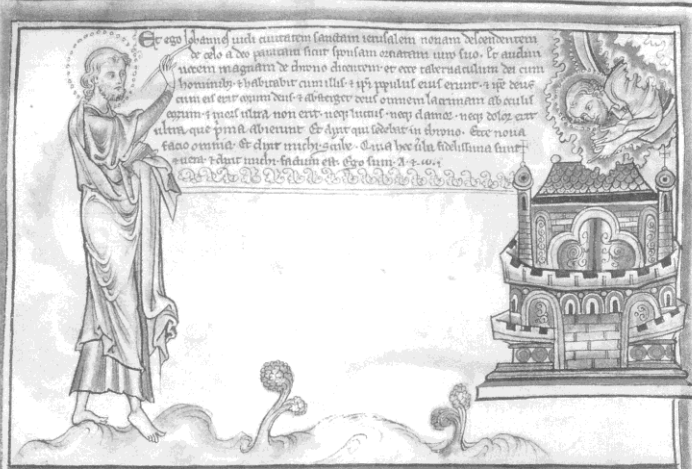 Et ego Iohannes uidi ciuitatem sanctam ierusalem nouam descendentem
de celo a deo paratam sicut sponsam ornatam uiro suo. Et audiui
uocem magnam de throno dicentem et ecce tabernaculum dei cum
hominibȝ ⁊ habitabit cum illis ⁊ ipi populus eius erunt ⁊ ipe deus
cum eis erit eorum deus ⁊ absterget deus omnem lacrimam ab oculis
eorum ⁊ mors ultra non erit neqȝ luctus neqȝ clamor neqȝ dolor erit
ultra que pima abierunt Et dixit qui sedebat in throno Ecce noua
facio omnia Et dixit michi scribe Quia hec uba fidelissima sunt
⁊ uera ⁊ dixit michi factum est Ego sum A ⁊ ω